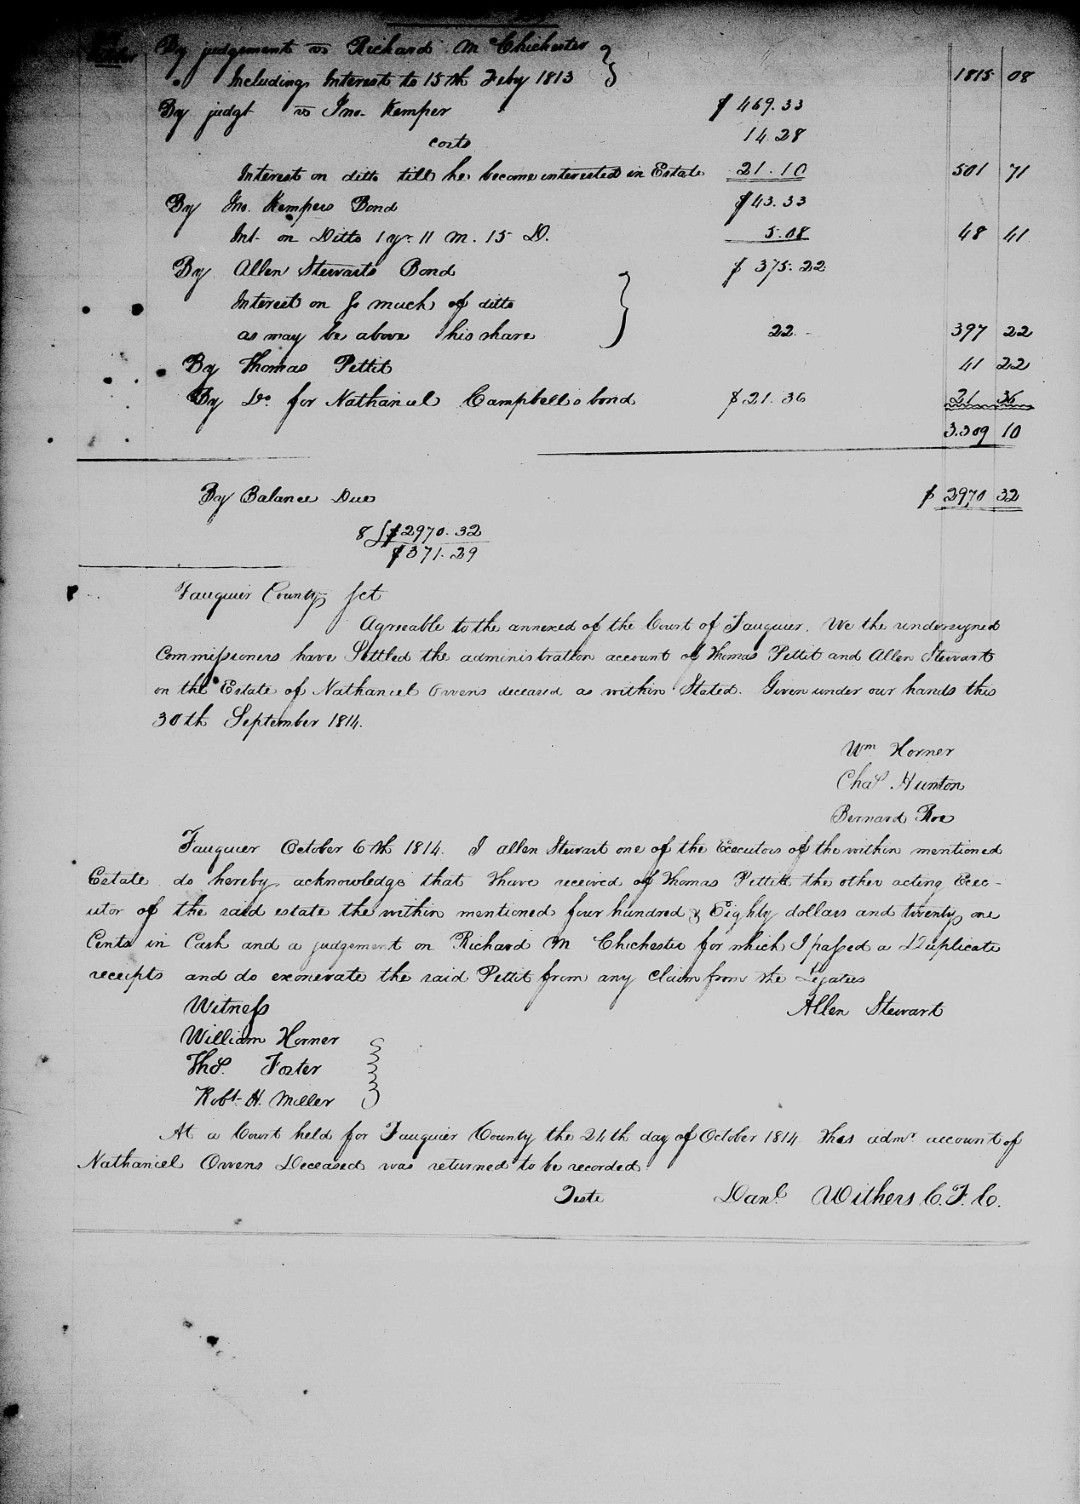 By judgement vs Richard M Chichester
" Including Interest to 15th Feby 1813 1815 08
By judgt vs Jno. Kemper $ 469.33
costs 14.28
Interest on ditto till he become interested in Estate 21.10 501 71
By Jno. Kempers Bond $43.33
Int. on Ditto 1 yr 11 m. 15 D. 5.08 48 41
By Allen Stewarts Bond $ 375.22
Interest on so much of ditto
as may be above his share 22 - 397 22
By Thomas Pettit 41 22
By Do. for Nathaniel Campbells bond $21.36 21 36
3.309 10
By Balance Due $ 2970 32
8 $2970.32
$371.29
Fauquier County Sct
Agreeable to the annexed of the Court of Fauquier. We the undersigned
Commissioners have Settled the administration account of Thomas Pettit and Allen Stewart
on the Estate of Nathaniel Owens deceased as within Stated. Given under our hands this
30th September 1814.
Wm Horner
Chas Hunton
Bernard Roe
Fauquier October 6th 1814. I allen Stewart one of the Executors of the within mentioned
Estate do hereby acknowledge that I have received of Thomas Pettit the other acting Exec-
utor of the said estate the within mentioned four hundred & Eighty dollars and twenty one
Cents in Cash and a judgement on Richard M Chichester for which I passed a Duplicate
receipts and do exonerate the said Pettit from any Claim from the Legatees
Witness Allen Stewart
William Horner
Thos. Foster
Robt. H. Miller
At a Court held for Fauquier County the 24th day of October 1814 This admr. account of
Nathaniel Owens Deceased was returned to be recorded.
Teste Danl. Withers C. F. C.